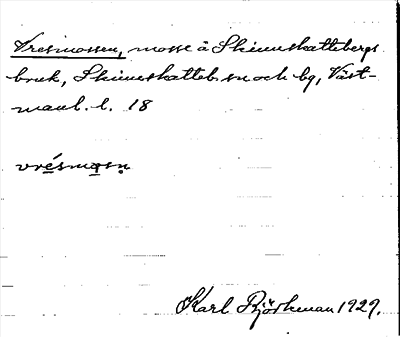 Vresmossen, mosse å Skinnskattebergs
bruk, Skinnskatteb. sn och bg, Väst-
manl. l. 18
vrésmǫsn̥
Karl Björkman 1929.